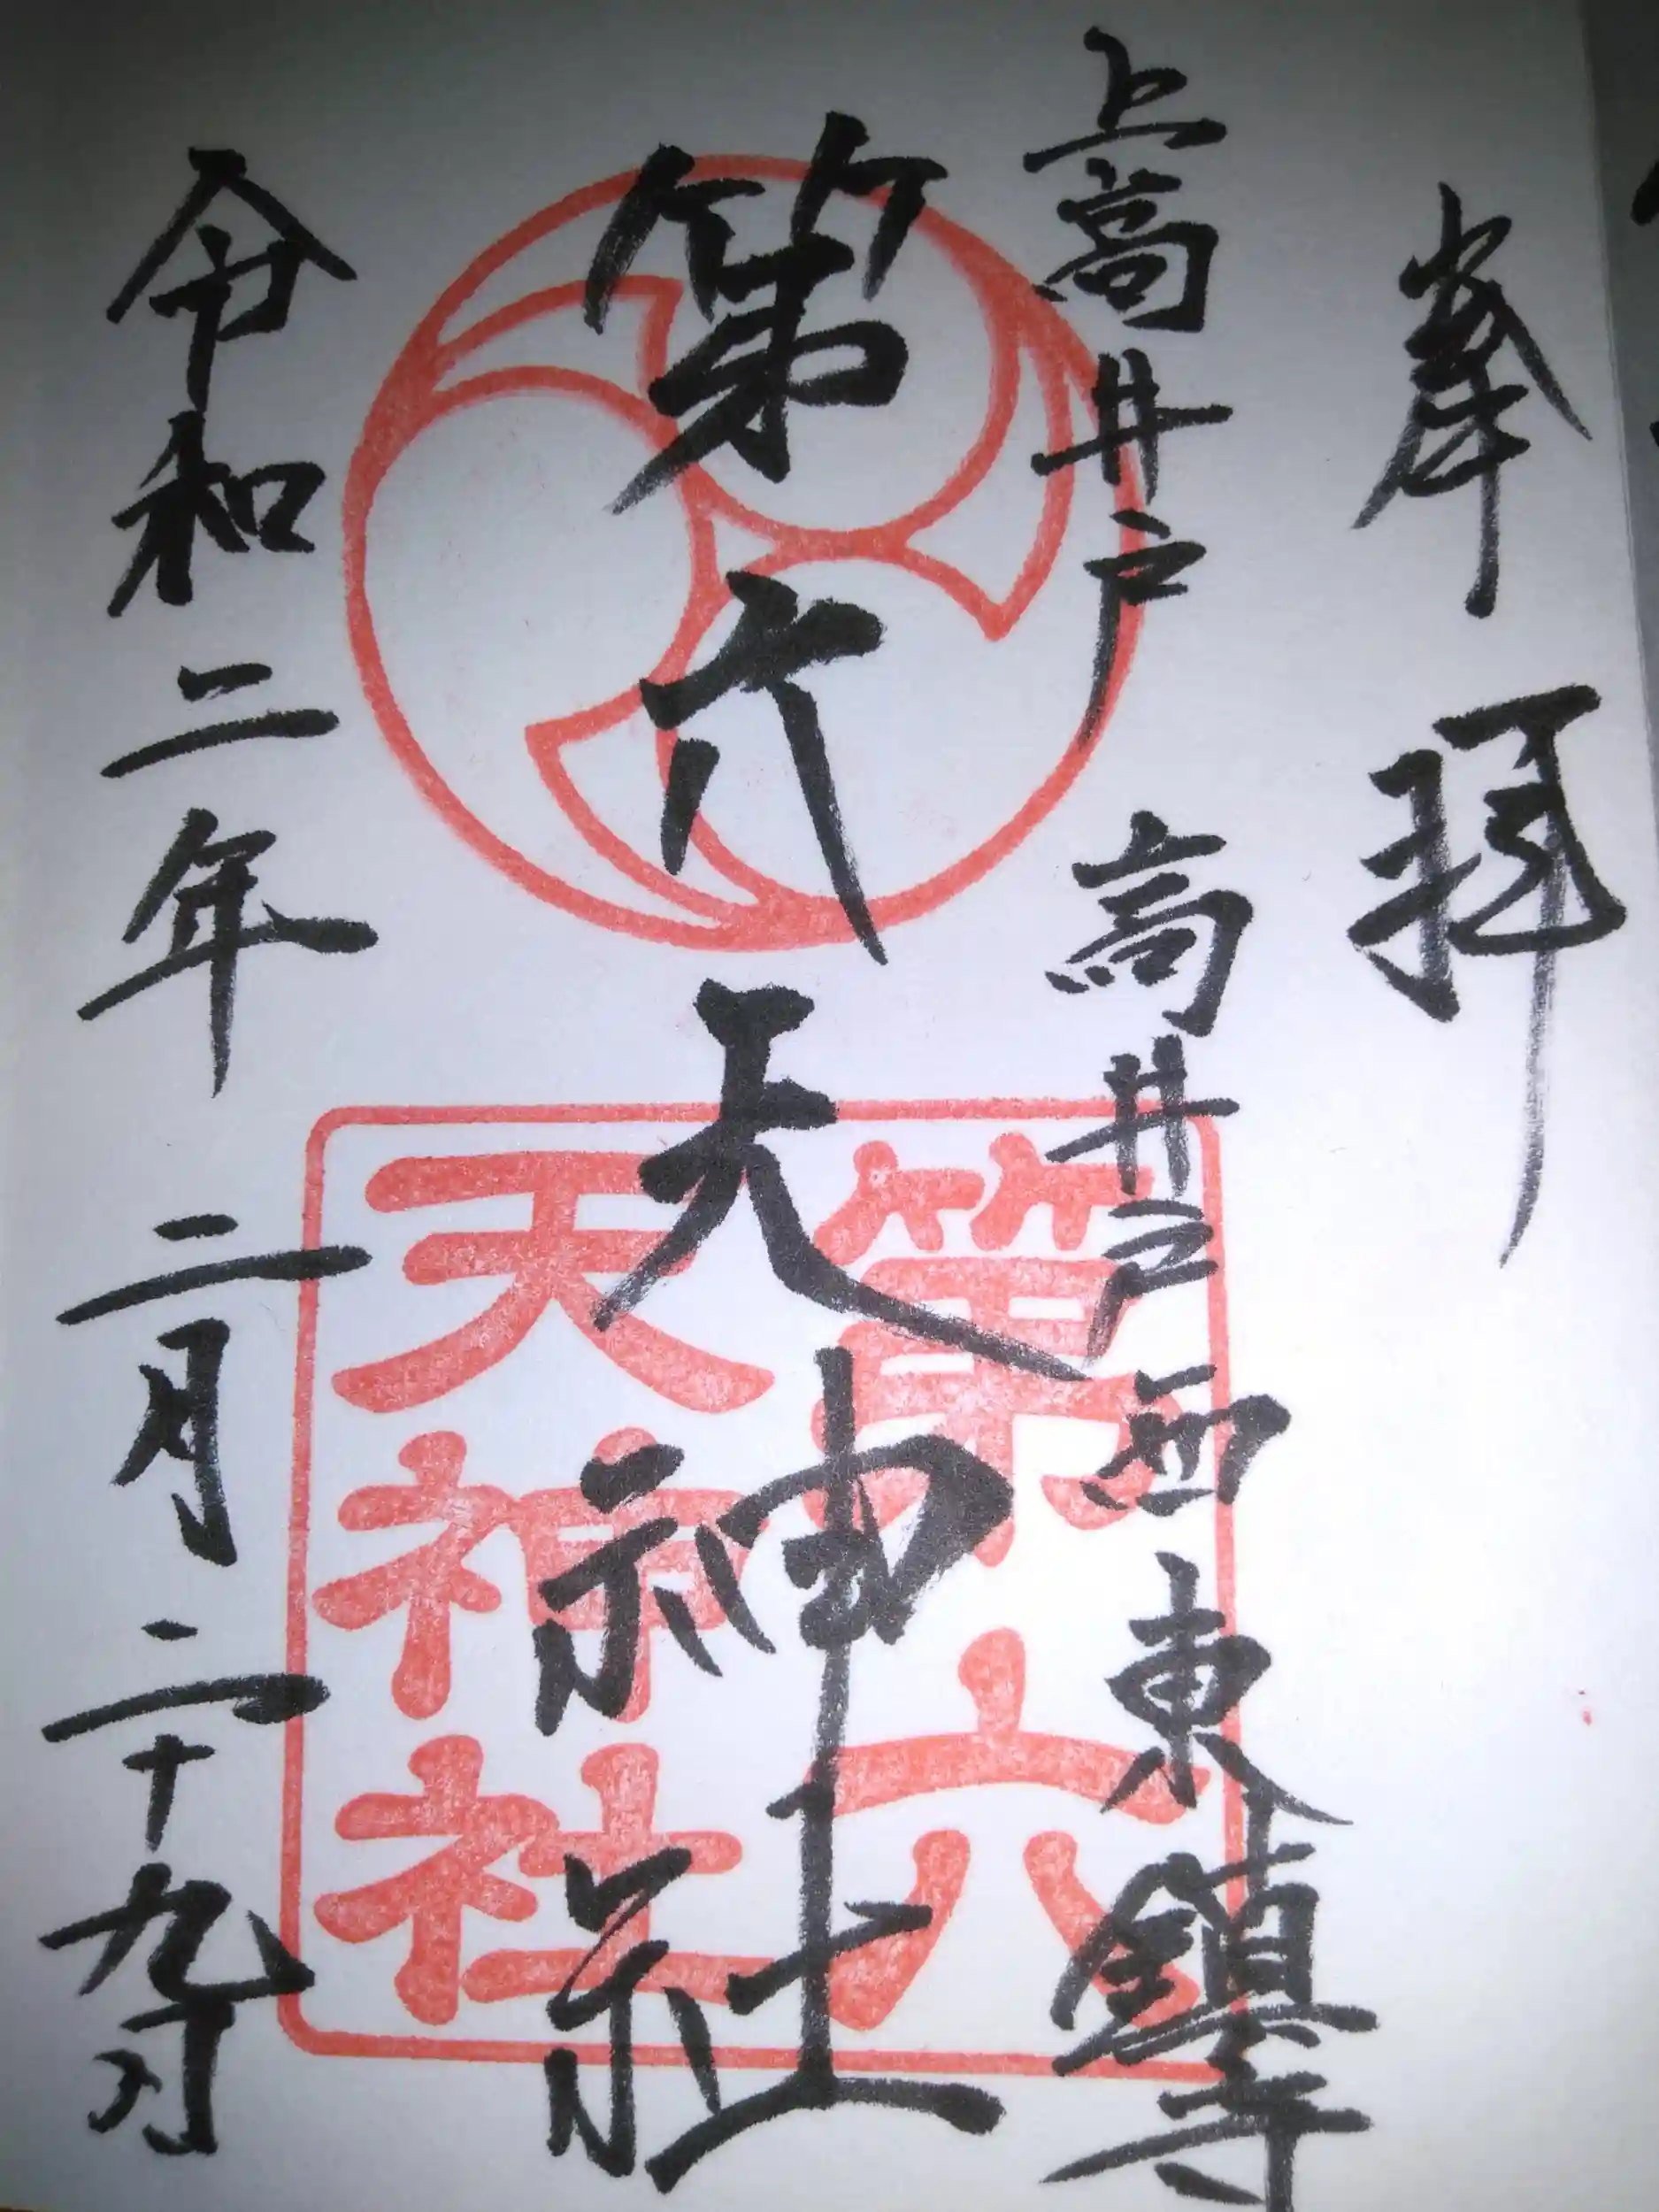 奉拝
上高井戸 高井戸西東鎮守
第六天神社
第六
天神社
令和二年二月二十九日